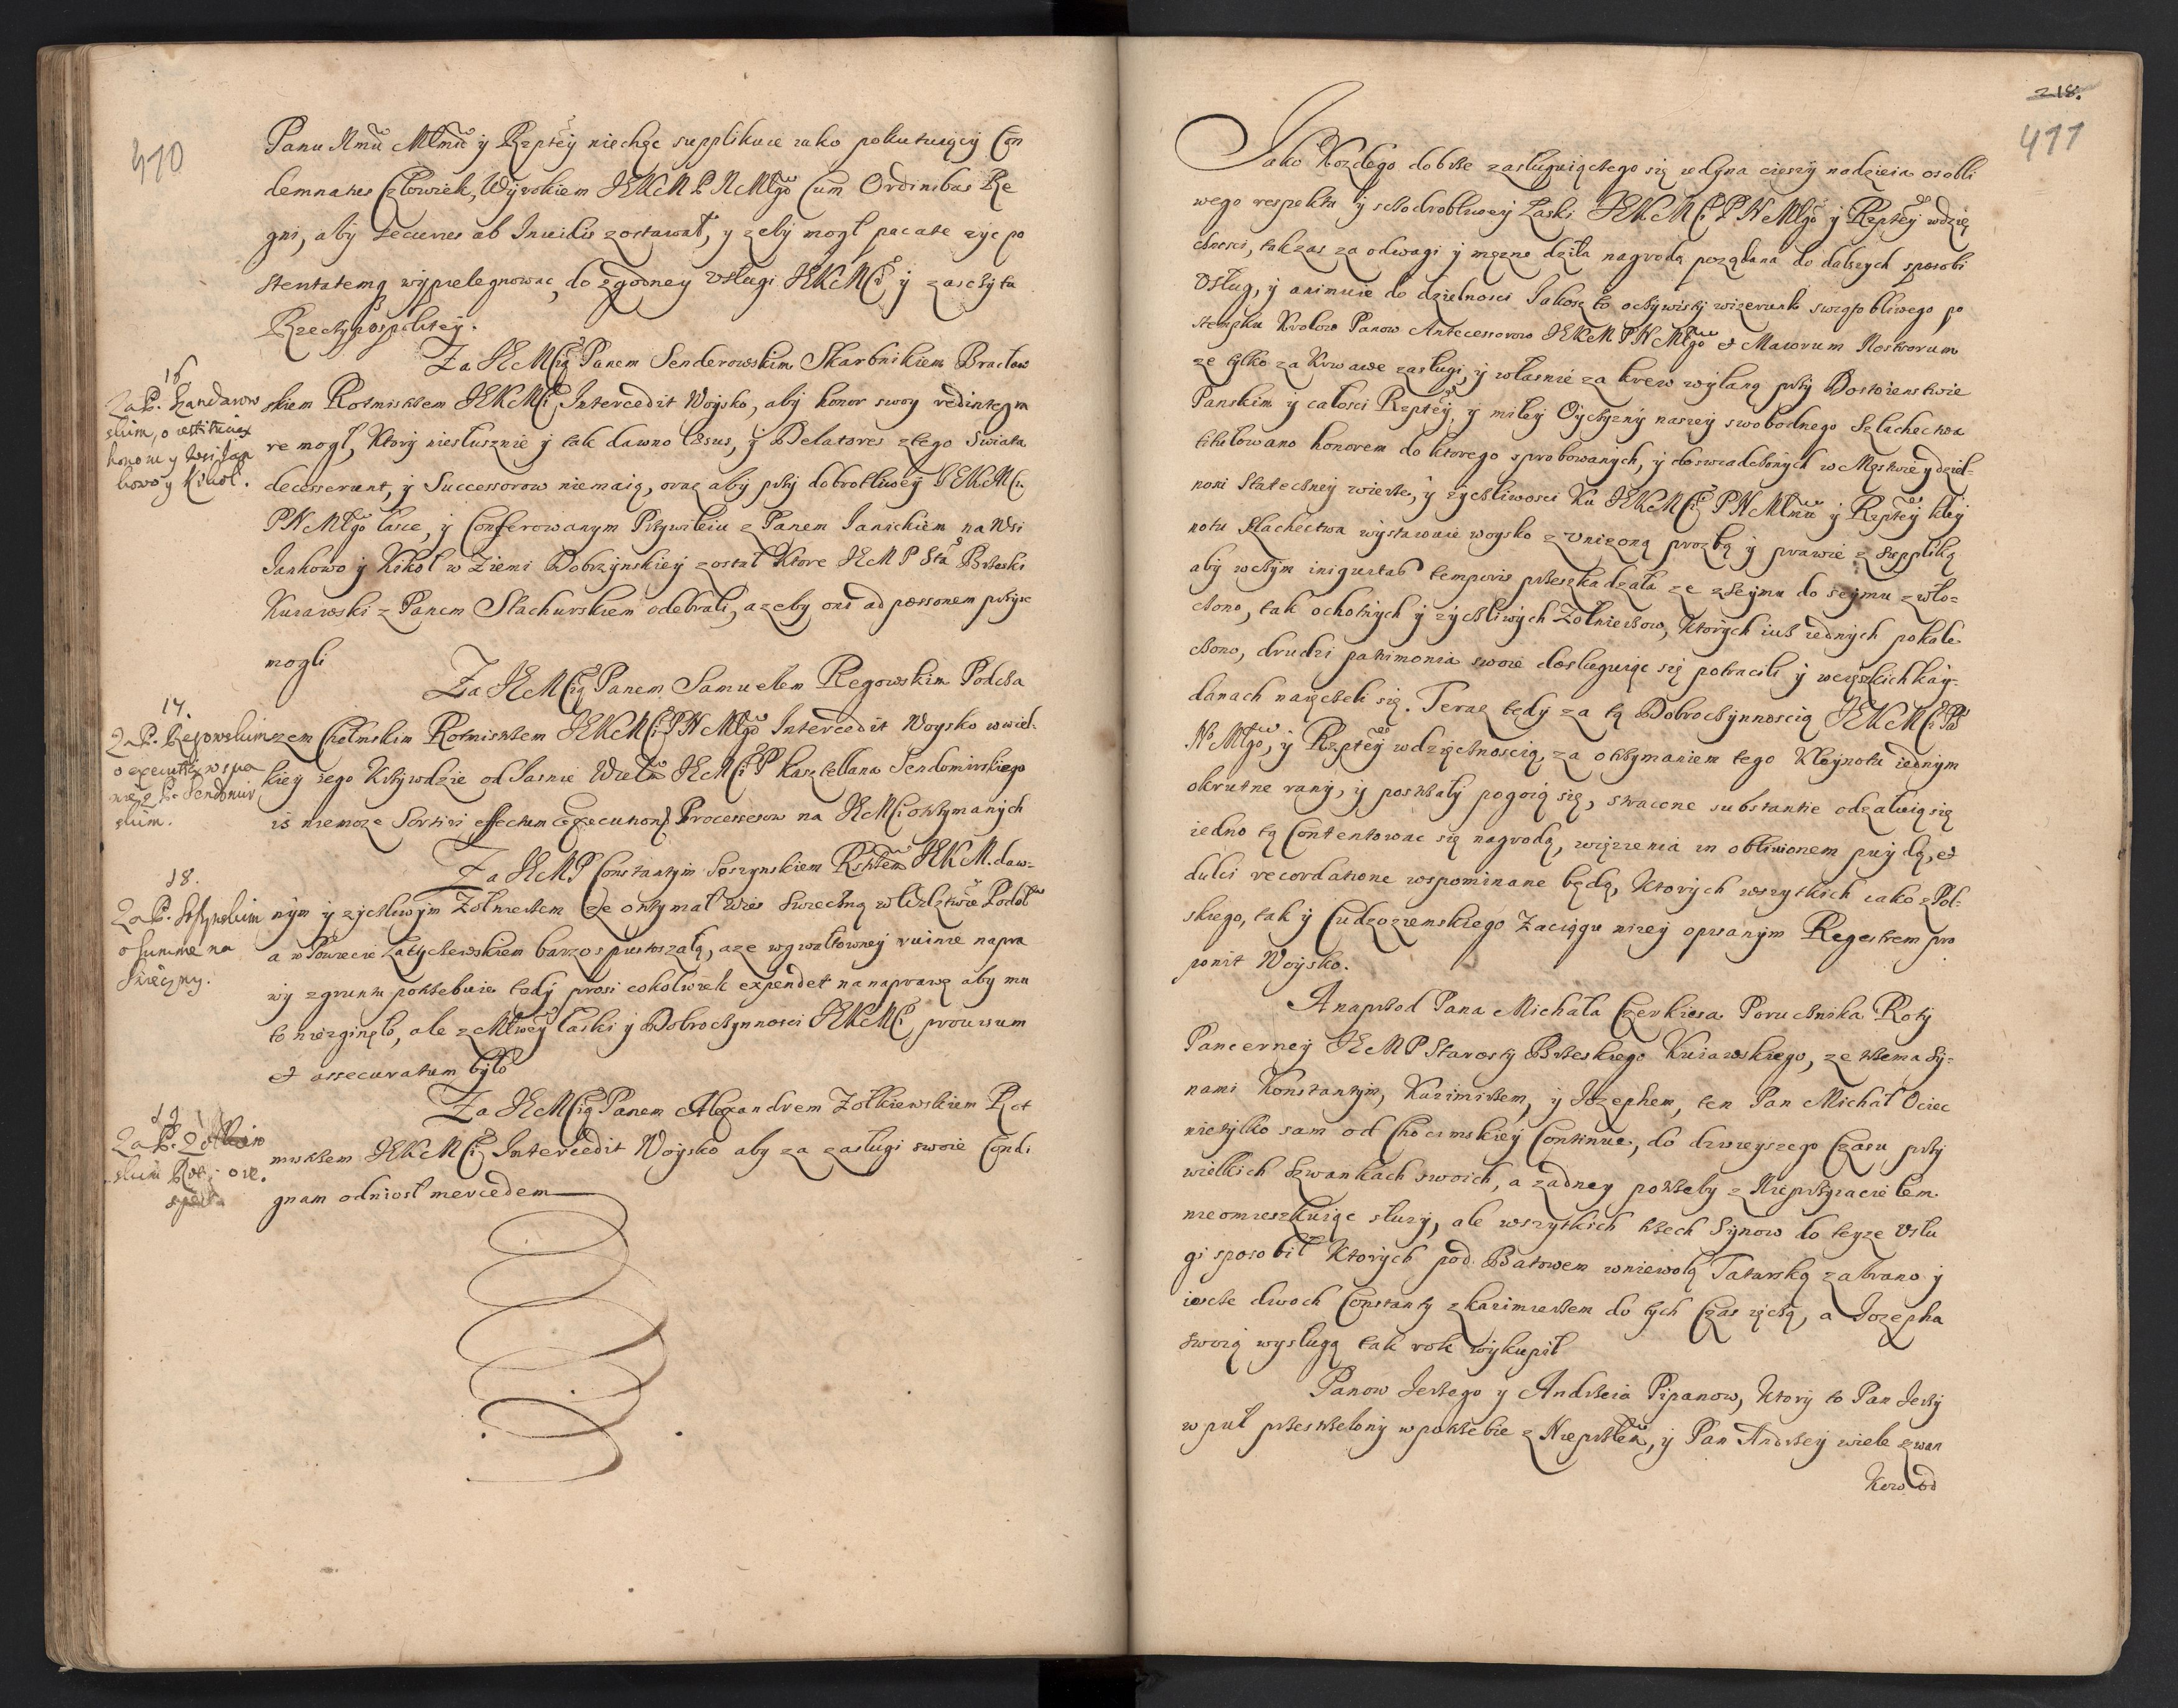 410
Panu Nmu Młmu ÿ Rzptey niechęc supplikuie iako pokutuięcÿ Con
demnatus Człowiek, Wÿrokiem JEKcM P. N Młgo Cum Ordinibus Re
gni, abÿ securus ab Inuidis zostawał, y zebÿ mogł pacate zÿc po
stentatemq wÿpielegnowac, do zgodneÿ Vsługi JEKcMCi ÿ zasczÿtu
Rzeczÿpospoliteÿ.
Za JEMCią Panem Senderowskim Skarbnikiem Bracław
16
Za P. Sandarow
skim, o restitucię
honoru y Wsi Jan
kowo y Kikoł.
skiem Rotmistrzem JEKcMCi Intercedit Woÿsko, abÿ honor swoÿ redintegra
re mogł, Ktorÿ niesłusznie ÿ tak dawno læsus, ÿ Delatores z tego swiata
decesserunt, ÿ Successorow niemaią, oraz abÿ przÿ dobrotliweÿ JEKcMCi
PN Młgo łasce, ÿ Conferowanym Przÿwileiu z Panem Janickiem na Wsi
Jankowo ÿ Kikoł w Ziemi Dobrzynskieÿ został Ktore JEcM P Sta Brzeski
Kuiawski z Panem Stachurskiem odebrali, a zeby oni ad possonem przÿisc
mogli
Za JEcMCią Panem Samuelem Regowskim Podcza
17.
Za P. Regowskim
o executię w spra
wie z P. Sendomir
skim.
szem Chełmskim Rotmistrzem JEKcMCi PN Młgo Intercedit Woysko w wiel-
kieÿ iego Krzÿwdzie od Jasnie Wielo JEcMCi P kasztellana Sendomirskiego
iż niemoze Sortiri effectum Executionis Processesow na JEcMCi otrzÿmanÿch
Za JEcMP Constantÿm Soszynskiem Rtmstrzem JEKcM. daw-
18.
Za P. Soszynskim
o summę na
Swięczny.
nÿm ÿ zÿczliwÿm Zołnierzem (ze otrzÿmał wies Swieczną w Wdztwie Podol
a w Powiecie Latÿczewskiem barzo spustoszałą, a ze w gwałtowneÿ ruinie napra
wÿ z gruntu potrzebuie tedÿ prosi cokolwiek expendet na naprawę aby mu
to niezginęło, ale z Młweÿ łaski ÿ Dobroczynnosci JEKcMCi prouisum
et assecuratum bÿło
Za JEcMCią Panem Alexandrem Zołkiewskiem Rot
19
Za P. Zolkiew
skim Rot: o re.
spekt
mistrzem JEKcMCi Intercedit Woÿsko abÿ za zasługi swoie Condi
gnam odniosł mercedem
218.
411
Jako Kozdego dobrze zasługuiączego się iedÿna cieszÿ nadzieia osobli
wego respektu ÿ sczodrobliweÿ Łaski JEKcMCi PN Młgo ÿ Rzpteÿ wdzię
cznosci, tak zas za odwagi ÿ męzne dziła nagroda poządana do dalszych sposobi
Vsług, ÿ animuie do dzielnosci Jakosz to oczÿwistÿ wizerunk swiątobliwego po
stempku Krolow Panow Antecessorow JEKcM PN Młgo et Maiorum Nostrorum
ze tÿlko za Krwawe zasługi, ÿ własnie za krew wÿlaną przÿ Dostoienstwie
Panskim ÿ całosci Rzpteÿ, ÿ miłeÿ Oÿczÿznÿ naszeÿ swobodnego Szlachectwa
titułowano honorem do ktorego sprobowanÿch, ÿ doswiadczonÿch w Męstwie ÿ dziel-
nosci Stateczneÿ wierze, ÿ zÿczliwosci Ku JEKcMCi PN Młmu ÿ Rzpteÿ kleÿ
notu Slachectwa wÿstawuie woysko z Vnizoną prozbą ÿ prawie z Suppliką
abÿ w czÿm iniquitas temporis przeszkadzała ze z Seÿmu do seÿmu zwło-
czono, tak ochotnÿch ÿ zÿczliwÿch Zołnierzow, Ktorÿch iuz iednÿch pokale
czono, drudzi patrimonia swoie dosługuiąc się potracili ÿ w cięzkich kaÿ-
danach naięczeli się. Teraz tedÿ za tą Dobroczÿnnoscią JEKcMCi P
N Młgo, ÿ Rzpteÿ wdzięcznoscią, za otrzÿmaniem tego Kleÿnotu iednÿm
okrutne ranÿ, ÿ postrzałÿ pogoią się, stracone substantie odzałuią się
iedno tą Contentowac się nagrodą, więzienia in obliuionem puÿdą, et
dulci recordatione wspominane będą, Ktorÿch wszÿtkich iako z Pol-
skiego, tak ÿ Cudzoziemskiego Zaciągu nizeÿ opisanÿm Regestrem pro
ponit Woÿsko.
A naprzod Pana Michała Czerkiesa Porucznika Rotÿ
Pancerneÿ JEcMP Starostÿ Brzeskiego Kuiawskiego, ze trzema Sÿ-
nami Konstantÿm, Kazimirzem, ÿ Jozephem, ten Pan Michał Ociec
nietÿlko sam od Chocimskieÿ Continue, do dzisieyszego Czasu przÿ
wielkich Szwankach swoich, a zadneÿ potrzebÿ z Nieprzÿiacielem
nieomieszkuiąc słuzÿ, ale wszÿtkich trzech Sÿnow do teÿze Vsłu
gi sposobił Ktorÿch pod Batowem w niewolą Tatarską zabrano ÿ
iescze dwoch Constantÿ z Kazimierzem do tÿch Czas ięczą, a Jozepha
swoią wÿsługą tak rok wÿkupił
Panow Jerzego ÿ Andrzeia Pipanow, Ktorÿ to Pan Jerzÿ
w puł przestrzelonÿ w potrzebie z Nieprzlem, ÿ Pan Andrzeÿ wiele szwan
kow od